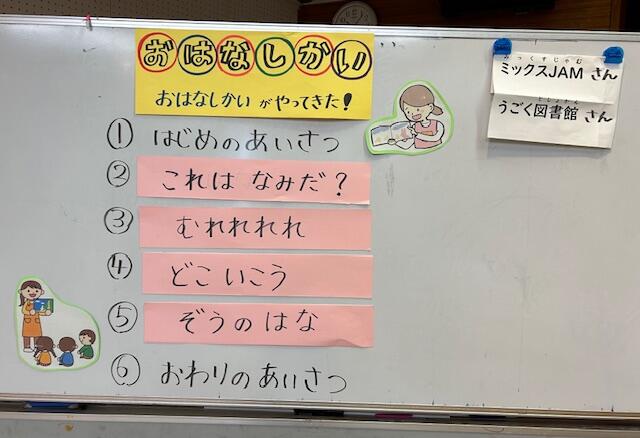 おはなしかい
おはなしかい がやってきた!
① はじめのあいさつ
② これは なみだ?
③ むれれれれれ
④ どこ いこう
⑤ ぞうの はな
⑥ おわりのあいさつ
みっくすじゃむ
ミックスJAM さん
としょかん
うごく図書館 さん